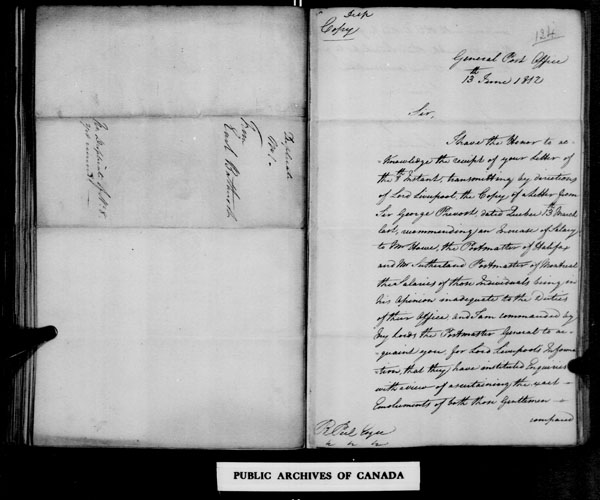 Dup
Copy
124
General Post Office
13th June 1812
Sir,
I have the Honor to ac-
-knowledge the receipt of your Letter of
the 8th Instant, transmitting by directions
of Lord Liverpool, the Copy of a Letter from
Sir George Prevost, dated Quebec 13th March
last, recommending an Increase of Salary
to Mr Howe, the Postmaster of Halifax
and Mr Sutherland Postmaster of Montreal
the Salaries of those Individuals being in
his Opinion inadequate to the Duties
of their Office and I am commanded by
My Lords the Postmaster General to ac-
-quaint you, for Lord Liverpools Informa-
-tion, that they have instituted Enquiries
with a view of ascertaining the exact
Emoluments of both those Gentlemen
compared
R Peel Esqre
&c &c &c
Duplicate
No 1.
From
Earl Bathurst
PUBLIC ARCHIVES OF CANADA